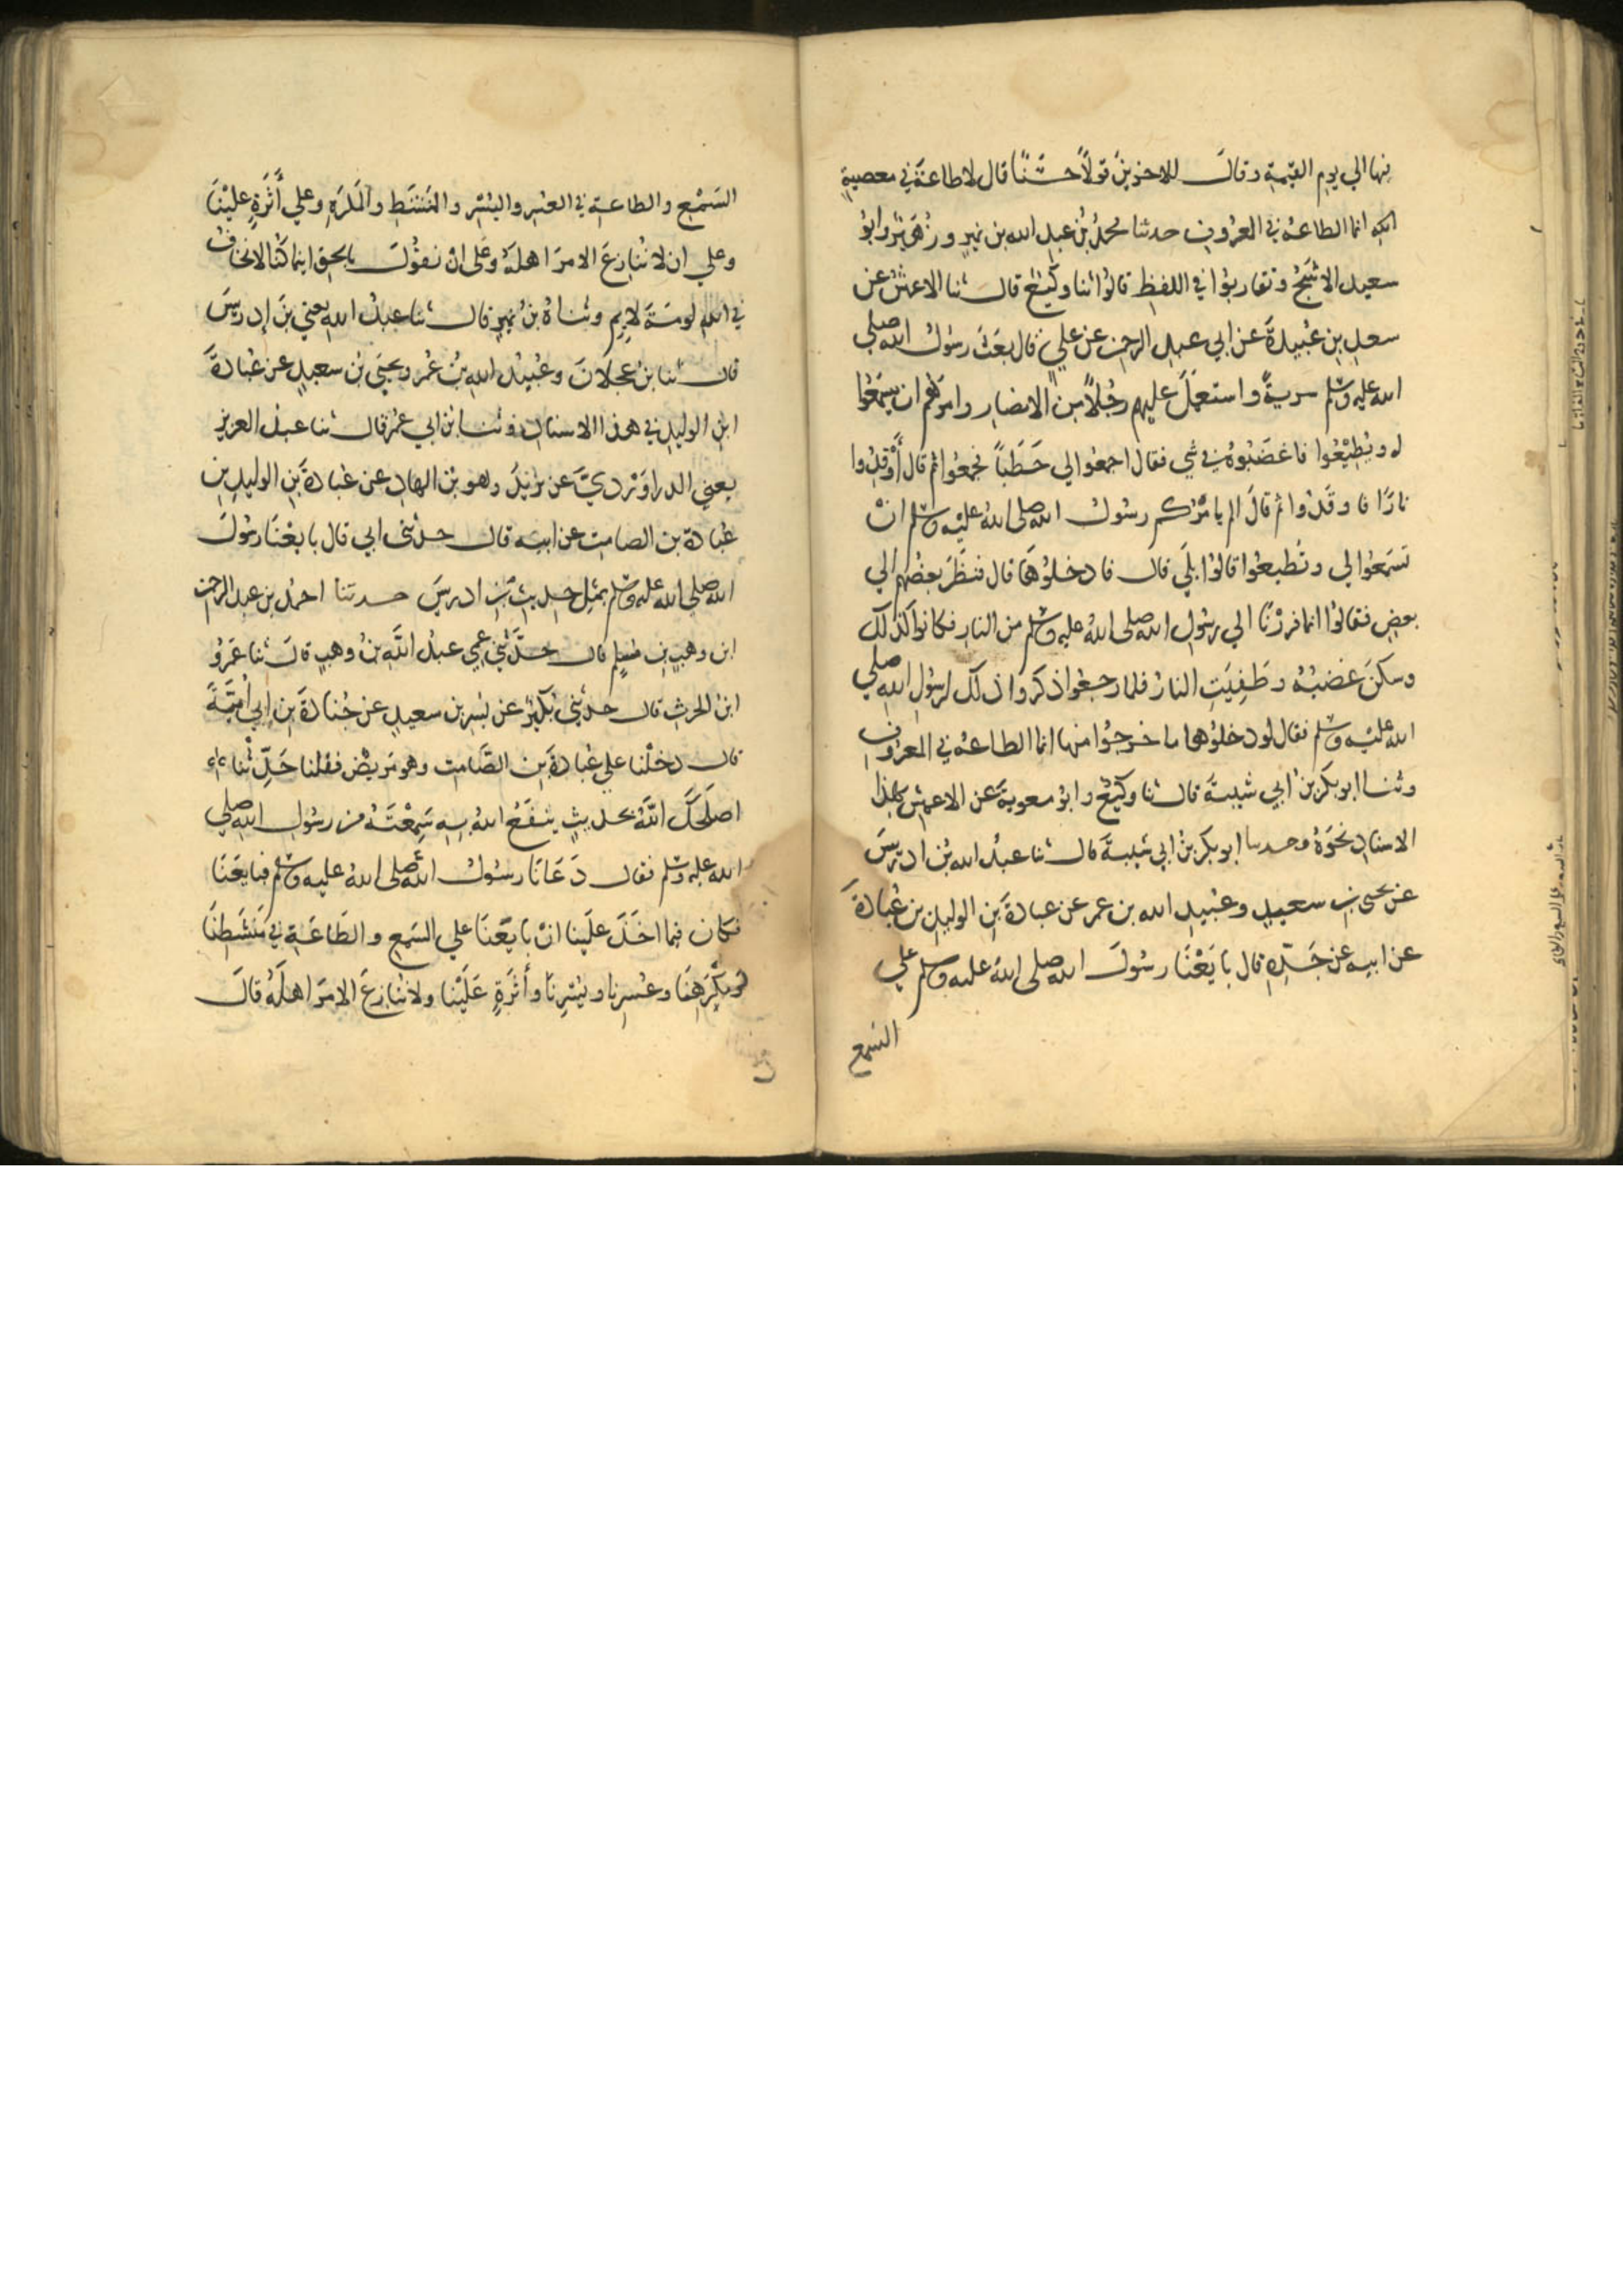 فيها الي يوم القيمة وقال للاخرين قولًا حسنًا قال لا طاعة في معصية
الله انما الطاعة في المعروف حدثنا محمد بن عبد الله بن نمير وزهير وابو
سعيد الاشج وتقاربوا في اللفظ قالوا ثنا وكيع قال ثنا الاعمش عن
سعد بن عبيدة عن ابي عبد الرحمن عن علي قال بعث رسول الله صلي
الله عليه وسلم سرية واستعمل عليهم رجلًا من الانصار وامرهم ان يسمعوا
له ويطيعوا فاغضبوه في شي فقال اجمعوا لي حطبًا فجمعوا ثم قال أوقدوا
نارًا فاوقدوا ثم قال الم يامركم رسول الله صلى الله عليه وسلم ان
تسمعوا لي وتطيعوا قالوا بلي قال فادخلوها قال فنظر بعضهم الي
بعض فقالوا انما فررنا الي رسول الله صلى الله عليه وسلم من النار فكانوا كذلك
وسكن غضبه وطفيت النار فلما رجعوا ذكروا ذلك لرسول الله صلي
الله عليه وسلم فقال لو دخلوها ما خرجوا منها انما الطاعة في المعروف
وثنا ابو بكر بن ابي شيبة قال ثنا وكيع وابو معوية عن الاعمش بهذا
الاسناد نحوه وحدثنا ابو بكر بن ابي شيبة قال ثنا عبد الله بن ادريس
عن يحيى بن سعيد وعبيد الله بن عمر عن عبادة بن الوليد بن عبادة
عن ابيه عن جده قال بايعنا رسول الله صلى الله عليه وسلم علي
السمع
السمع والطاعة في العسر واليسر والمنشط والمكره وعلي أثرة علينا
وعلي ان لا ننازع الامر اهله وعلى ان نقول بالحق اينما كنا لا نخاف
في الله لومة لايم وثناه بن نمير قال ثنا عبد الله يعني بن إدريس
قال ثنا بن عجلان وعبيد الله بن عمر ويحيى بن سعيد عن عبادة
ابن الوليد في هذا الاسناد وثنا ابن ابي عمر قال ثنا عبد العزيز
يعني الدراوردي عن يزيد وهو بن الهاد عن عبادة بن الوليد بن
عبادة بن الصامت عن ابيه قال حدثنى ابي قال بايعنا رسول
الله صلي الله عليه وسلم بمثل حديث بن ادريس حدثنا احمد بن عبد الرحمن
ابن وهب بن مسلم قال حدثني عمي عبد الله بن وهب قال ثنا عمرو
ابن الحرث قال حدثني بكير عن بسر بن سعيد عن جنادة بن ابي أمية
قال دخلنا علي عبادة بن الصامت وهو مريض فقلنا حدثنا
اصلحك الله بحديث ينفع الله به سمعته من رسول الله صلي
الله عليه وسلم فقال دعانا رسول الله صلى الله عليه وسلم فبايعنا
فكان فيما اخذ علينا ان بايعنا علي السمع والطاعة في منشطنا
ومكرهنا وعسرنا ويسرنا وأثرة علينا ولا ننازع الامر اهله قال